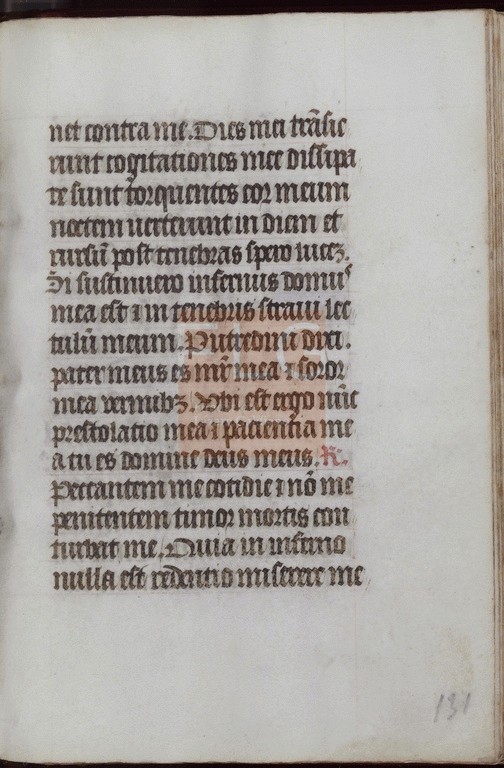 net contra me. Dies mei trãsie
runt cogitationes mee dissipa
te sunt torquentes cor meum
noctem uerterunt in diem et
rursũ post tenebras spero lucez.
Si sustinuero infernus domus
mea est ⁊ in tenebris straui lec
tulũ meum. Putredini dixi.
pater meus es mr̃ mea ⁊ soror
mea vermibꝫ. Vbi est ergo nũc
prestolatio mea ⁊ pacientia me
a tu es domine deus meus. R.
Peccantem me cotidie ⁊ nõ me
penitentem timor mortis con
turbat me. Quia in inferno
nulla est redemtio miserere me
131